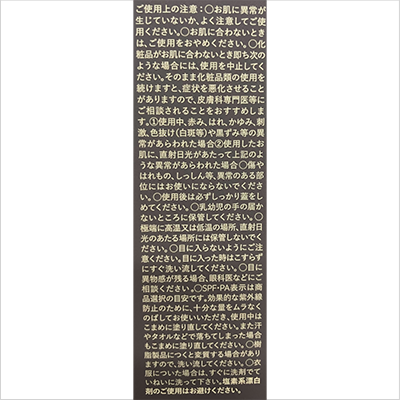 ご使用上の注意：○お肌に異常が
生じていないか、よく注意してご使
用ください。○お肌に合わないとき
は、ご使用をおやめください。○化
粧品がお肌に合わないとき即ち次の
ような場合には、使用を中止してく
ださい。そのまま化粧品類の使用を
続けますと、症状を悪化させること
がありますので、皮膚科専門医等に
ご相談されることをおすすめしま
す。①使用中、赤み、はれ、かゆみ、刺激、
色抜け(白斑等)や黒ずみ等の異
常があらわれた場合②使用したお
肌に、直射日光があたって上記のよ
うな異常があらわれた場合○傷や
はれもの、しっしん等、異常のある部
位にはお使いにならないでくださ
い。○使用後は必ずしっかり蓋をし
めてください。○乳幼児の手の届か
ないところに保管してください。○
極端に高温又は低温の場所、直射日
光のあたる場所には保管しないでく
ださい。○目に入らないようにご注
意ください。目に入った時はこすらず
にすぐ洗い流してください。○目に
異物感が残る場合、眼科医などにご
相談ください。○SPF・PA表示は商
品選択の目安です。効果的な紫外線
防止のために、十分な量をムラなく
のばしてお使いいただき、使用中は
こまめに塗り直してください。また汗
やタオルなどで落ちてしまった場合
もこまめに塗り直してください。○樹
脂製品につくと変質する場合があり
ますので、洗い流してください。○衣
服についた場合は、すぐに洗剤でて
いねいに洗って下さい。塩素系漂白
剤のご使用はお避けください。